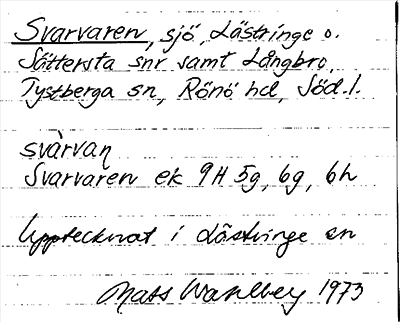 Svarvaren, sjö, Lästringe o.
Sättersta snr samt Långbro,
Tystberga sn, Rönö hd, Söd.l.
svàrvan
Svarvaren ek 9H 5g, 6g, 6h
Upptecknat i Lästringe sn
Mats Wahlberg 1973